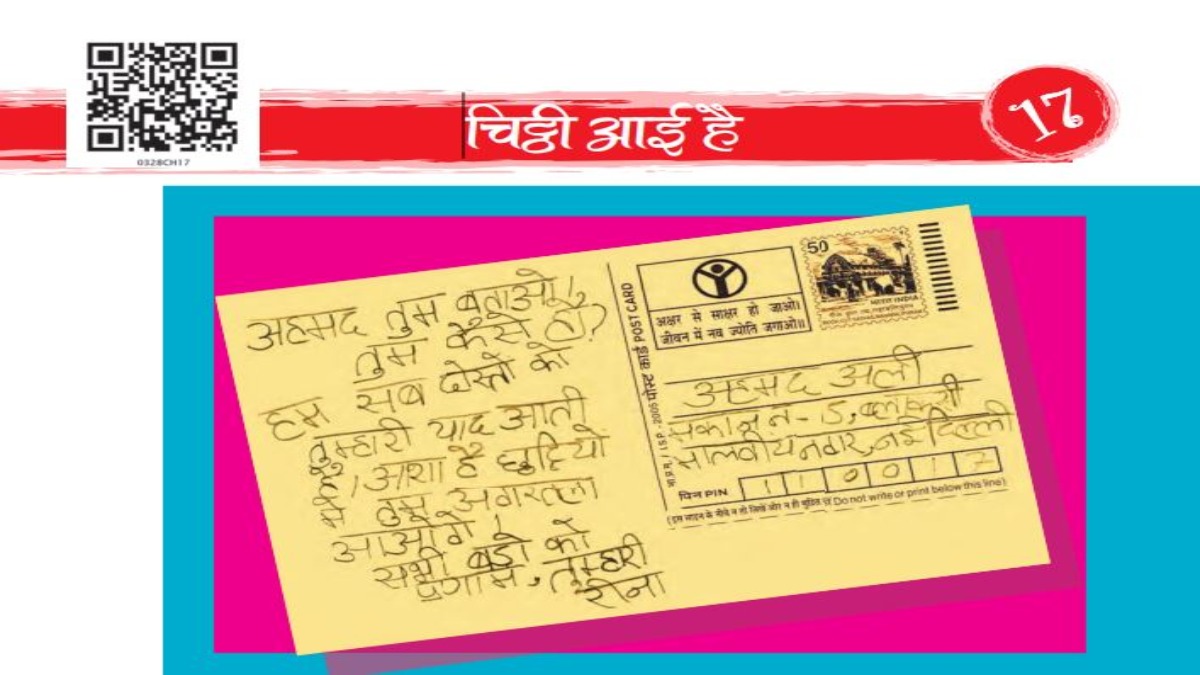 0328CH17
चिट्ठी आई है
17
अहमद तुम बताओ,
तुम कैसे हो?
हम सब दोस्तों को
तुम्हारी याद आती
है। आशा है छुट्टियों
में तुम अगरतला
आओगे।
सभी बड़ो को
प्रणाम, तुम्हारी
रीना
पोस्ट कार्ड POST CARD
अक्षर से साक्षर हो जाओ।
जीवन में नव ज्योति जगाओ॥
50
INDIA
अहमद अली
मकान न- 5,
मालवीय नगर, नई दिल्ली
पिन PIN 110017
(इस लाइन के नीचे न तो लिखें और न ही मुद्रित करें Do not write or print below this line)